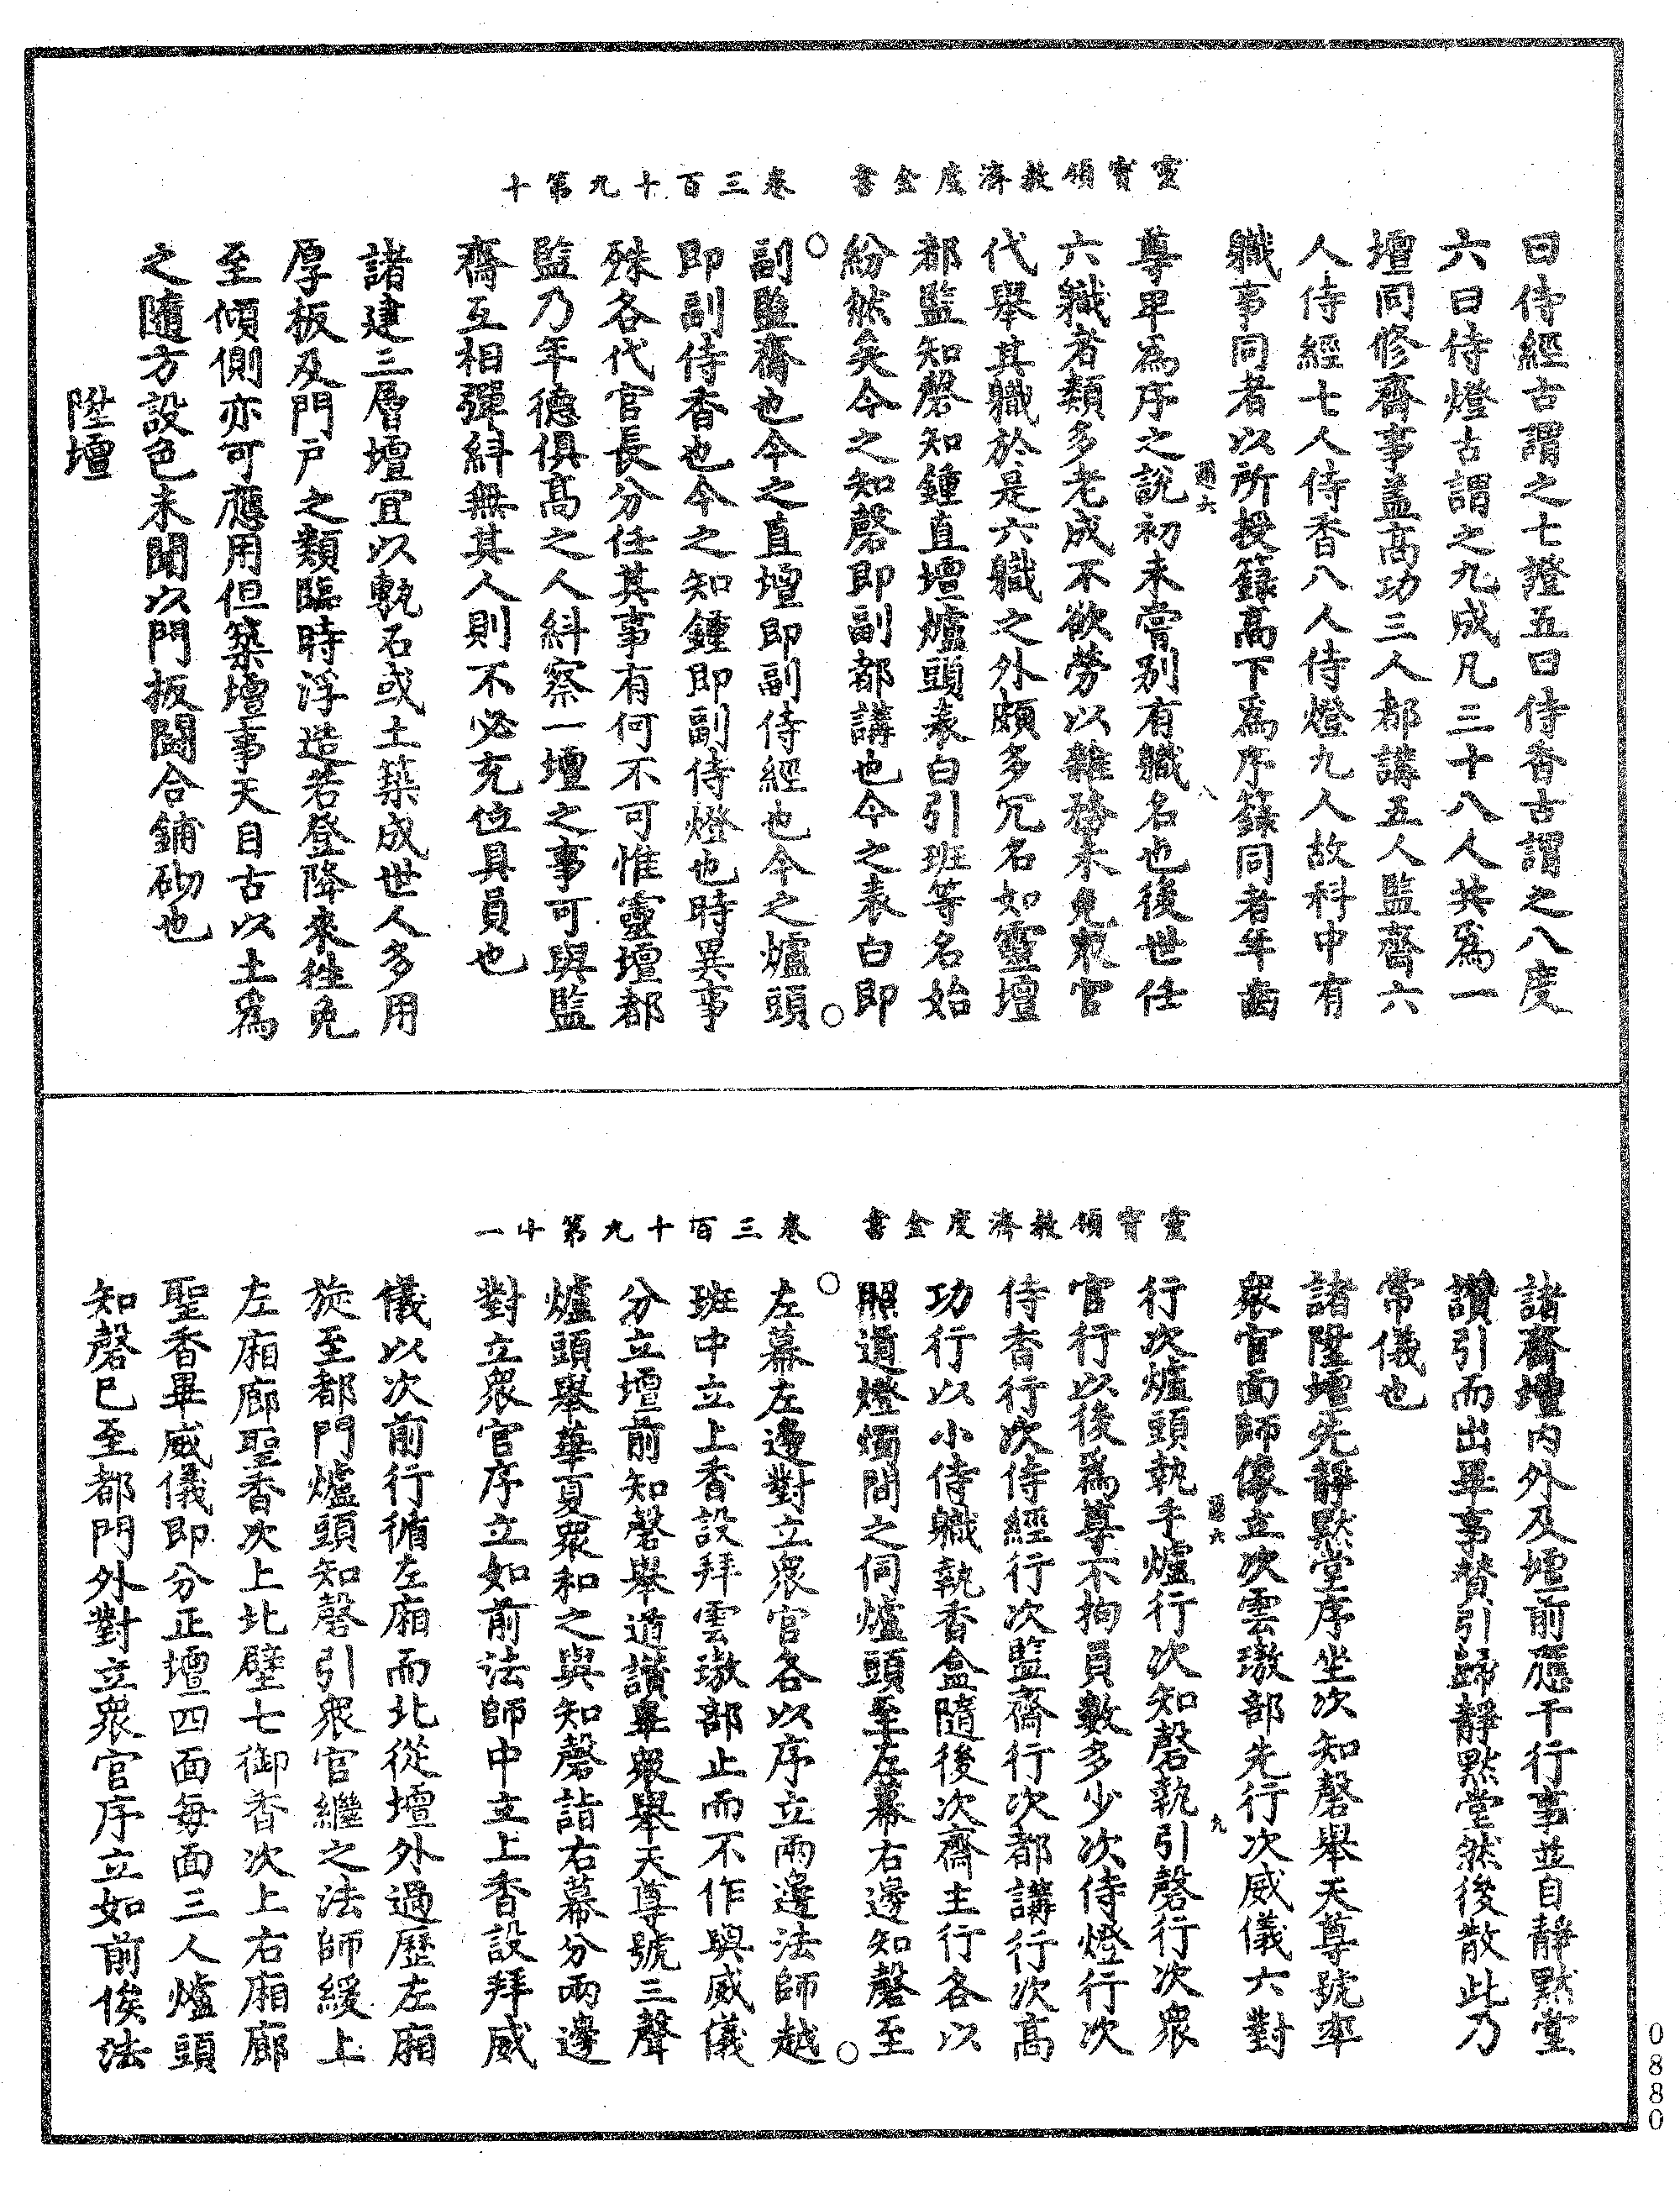 靈寶領教濟度金書　卷三百十九第十
曰侍經古謂之七證五曰侍香古謂之八度
六曰侍燈古謂之九成凡三十八人共爲一
壇同修齋事蓋高功三人都講五人監齋六
人侍經七人侍香八人侍燈九人故科中有
職事同者以所授籙高下爲序籙同者年齒
尊卑爲序之說初未嘗别有職名也後世任
六職者類多老成不欲勞以雜務未免衆官
代舉其職於是六職之外頗多冗名如靈壇
都監知磬知鍾直壇爐頭表白引班等名始
紛然矣今之知磬即副都講也今之表白即
副監齋也今之直壇即副侍經也今之爐頭
即副侍香也今之知鍾即副侍燈也時異事
殊各代官長分任其事有何不可惟靈壇都
監乃年德俱高之人糾察一壇之事可與監
齋互相彈糾無其人則不必充位具員也
諸建三層壇宜以甎石或土築成世人多用
厚板及門戸之類臨時浮造若登降來往免
至傾側亦可應用但築壇事天自古以土爲
之隨方設色未聞以門板闔合鋪砂也
陞壇
靈寶領教濟度金書　卷三百十九第十一
諸齋壇内外及壇前應干行事並自靜默堂
讚引而出畢事贊引歸靜默堂然後散此乃
常儀也
諸陞壇先靜默堂序坐次知磬舉天尊號率
衆官面師像立次雲璈部先行次威儀六對
行次爐頭執手爐行次知磬執引磬行次衆
官行以後爲尊不拘員數多少次侍燈行次
侍香行次侍經行次監齋行次都講行次高
功行以小侍職執香盒隨後次齋主行各以
照道燈燭間之伺爐頭至左幕右邊知磬至
左幕左邊對立衆官各以序立兩邊法師越
班中立上香設拜雲璈部止而不作與威儀
分立壇前知磬舉道讚畢衆舉天尊號三聲
爐頭舉華夏衆和之與知磬詣右幕分兩邊
對立衆官序立如前法師中立上香設拜威
儀以次前行循左廂而北從壇外過歷左廂
旋至都門爐頭知磬引衆官繼之法師緩上
左廂廊聖香次上北壁七御香次上右廂廊
聖香畢威儀即分正壇四面每面三人爐頭
知磬巳至都門外對立衆官序立如前俟法
0880